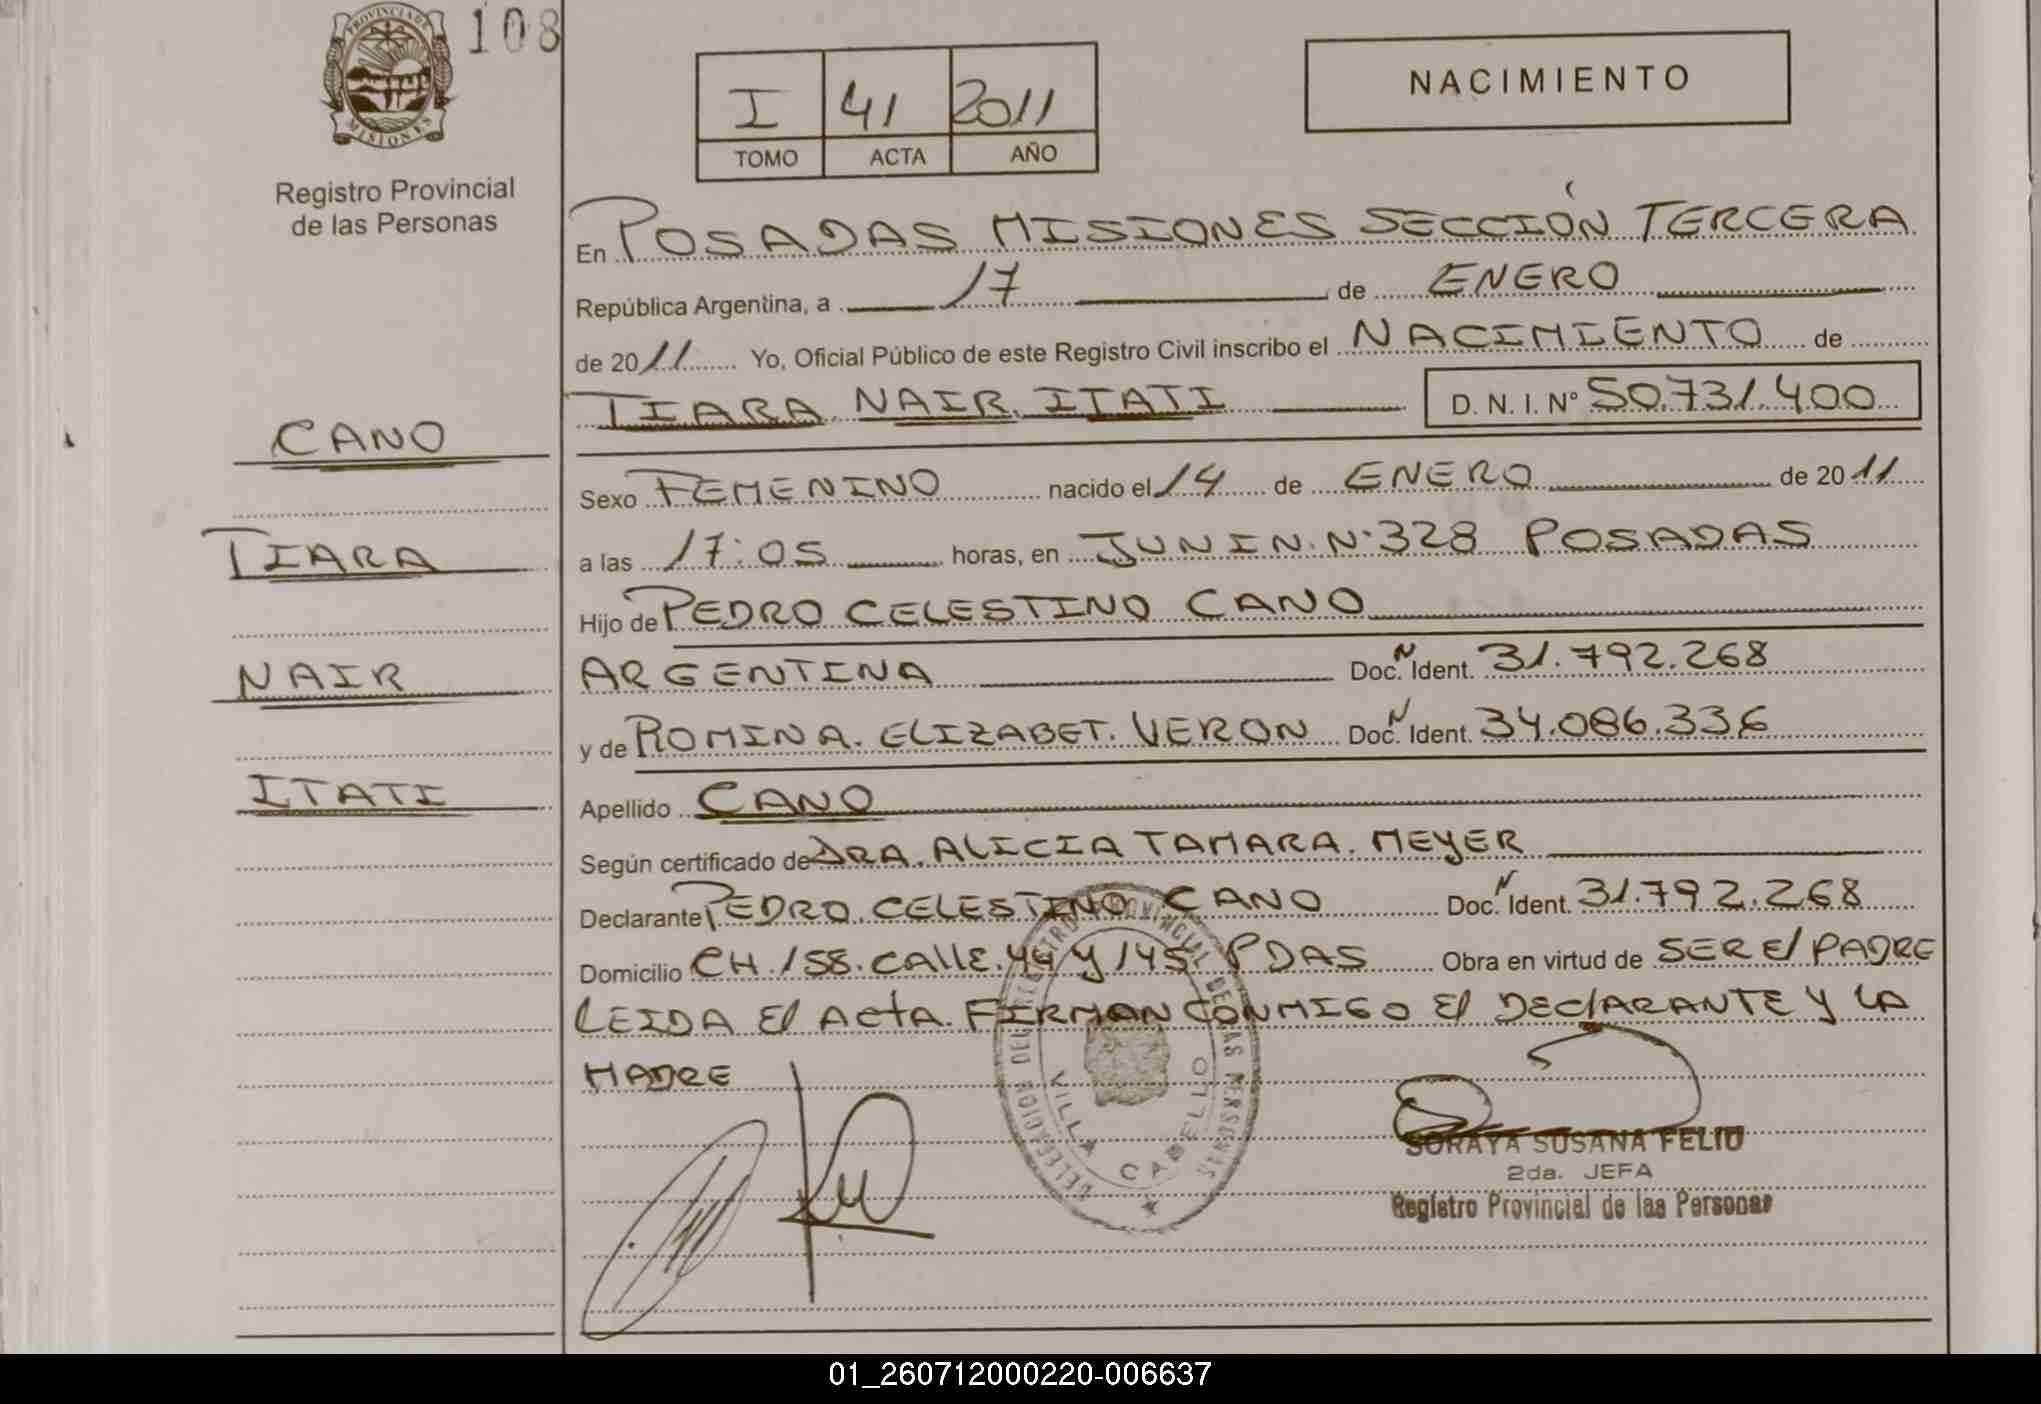 PROVINCIA DE
MISIONES
108
Registro Provincial
de las Personas
I 41 2011
TOMO ACTA AÑO
NACIMIENTO
En POSADAS MISIONES SECCIÓN TERCERA
República Argentina, a 17 de ENERO
de 2011 Yo, Oficial Público de este Registro Civil inscribo el NACIMIENTO de
TIARA NAIR ITATI D. N. I. N° 50.731.400
CANO
TIARA
NAIR
ITATI
Sexo FEMENINO nacido el 14 de ENERO de 2011
a las 17:05 horas, en JUNIN N° 328 POSADAS
Hijo de PEDRO CELESTINO CANO
ARGENTINA Doc. N Ident. 31.792.268
y de ROMINA. ELIZABET. VERON Doc. N Ident. 34.086.336
Apellido CANO
Según certificado de DRA. ALICIA TAMARA. MEYER
Declarante PEDRO CELESTINO CANO Doc. N Ident. 31.792.268
Domicilio CH. 158. CALLE. 44 y 145. PDAS Obra en virtud de SER El PADRE
LEIDA El ActA. FIRMAN CONMIGO El DEClARANTE Y LA
MADRE
DELEGACION DEL REGISTRO PROVINCIAL DE LAS PERSONAS
VILLA CABELLO
SORAYA SUSANA FELIU
2da. JEFA
Registro Provincial de las Personas
01_260712000220-006637